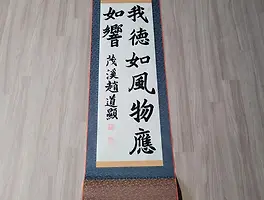 我德如風物應
如響 茂溪趙道顯